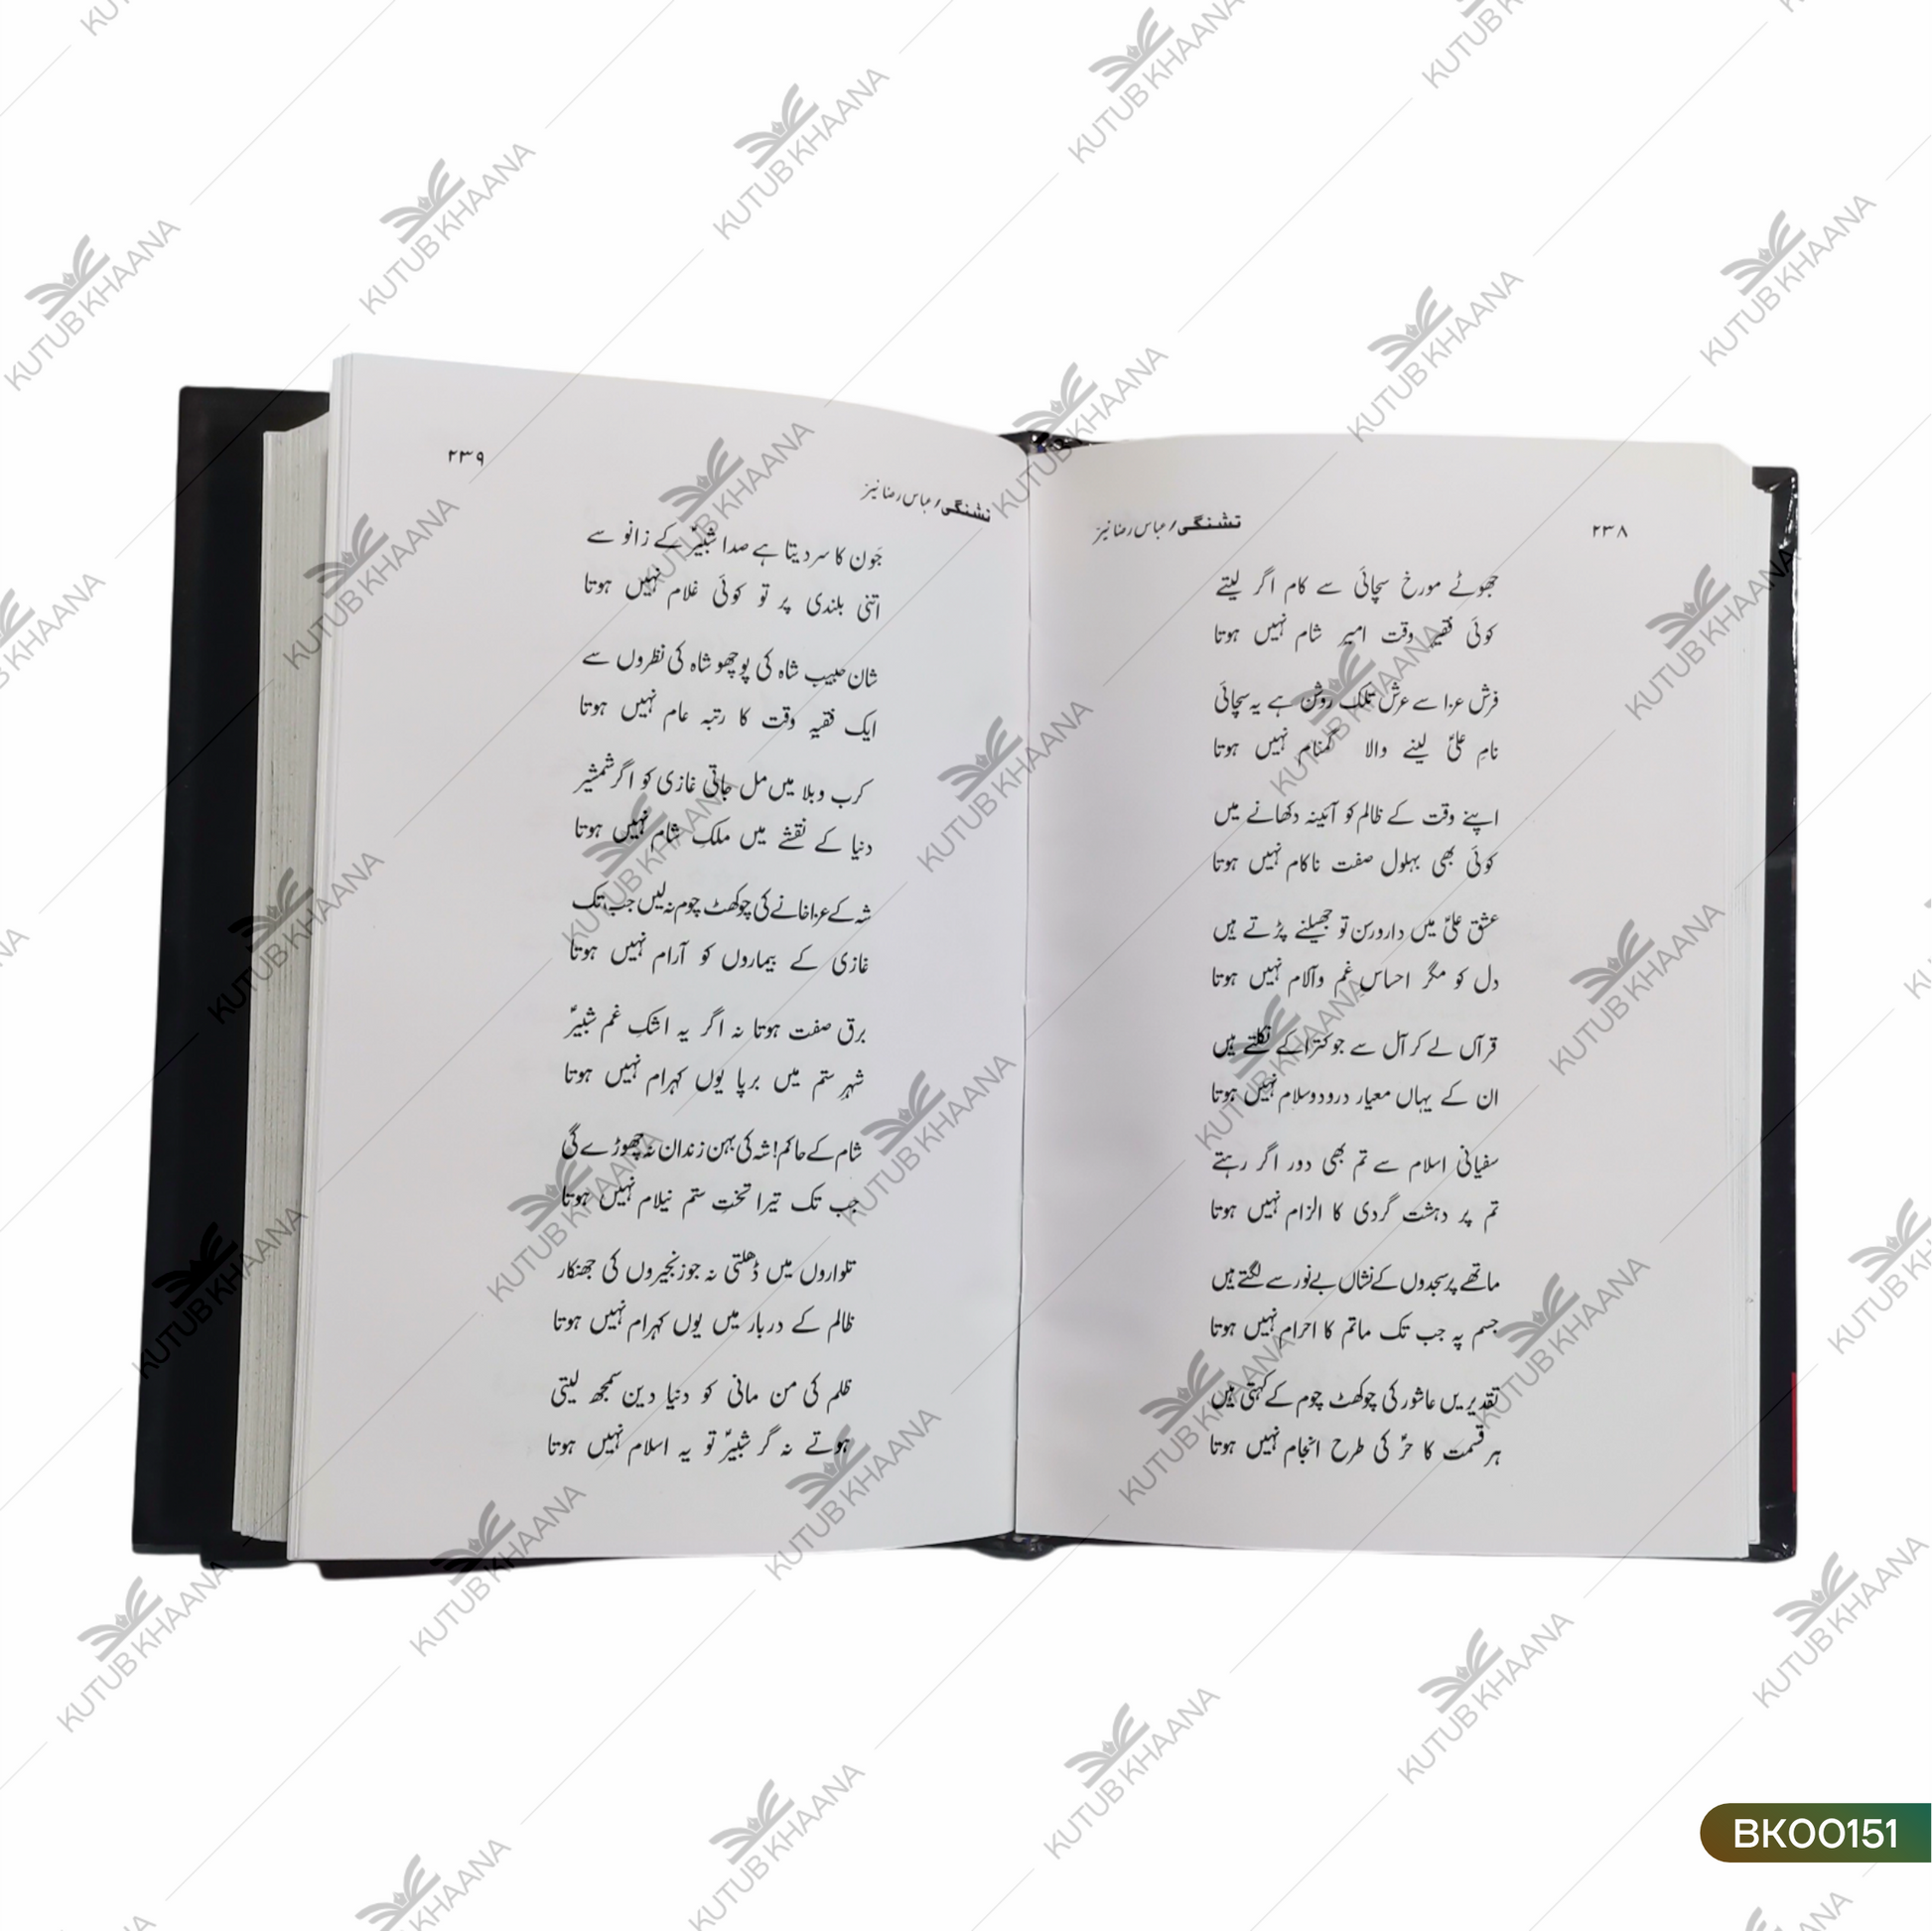 ۲۳۸
تشنگی / عباس رضا نیرؔ
جھوٹے مورخ سچائی سے کام اگر لیتے
کوئی فقیر وقت امیر شام نہیں ہوتا
فرش عزا سے عرش تلک روشن ہے یہ سچائی
نامِ علیؑ لینے والا گمنام نہیں ہوتا
اپنے وقت کے ظالم کو آئینہ دکھانے میں
کوئی بھی بہلول صفت ناکام نہیں ہوتا
عشق علیؑ میں دار و رسن تو جھیلنے پڑتے ہیں
دل کو مگر احساس غم و آلام نہیں ہوتا
قرآں لے کر آل سے جو کترا کے نکلتے ہیں
ان کے یہاں معیار درود و سلام نہیں ہوتا
سفیانی اسلام سے تم بھی دور اگر رہتے
تم پر دہشت گردی کا الزام نہیں ہوتا
ماتھے پر سجدوں کے نشاں بے نور سے لگتے ہیں
جسم پہ جب تک ماتم کا احرام نہیں ہوتا
تقدیریں عاشور کی چوکھٹ چوم کے کہتی ہیں
ہر قسمت کا حرؑ کی طرح انجام نہیں ہوتا
تشنگی / عباس رضا نیرؔ
۲۳۹
جَون کا سر دیتا ہے صدا شبیرؑ کے زانو سے
اتنی بلندی پر تو کوئی غلام نہیں ہوتا
شان حبیب شاہ کی پوچھو شاہ کی نظروں سے
ایک فقیہِ وقت کا رتبہ عام نہیں ہوتا
کرب و بلا میں مل جاتی غازی کو اگر شمشیر
دنیا کے نقشے میں ملکِ شام نہیں ہوتا
شہ کے عزا خانے کی چوکھٹ چوم نہ لیں جب تک
غازی کے بیماروں کو آرام نہیں ہوتا
برق صفت ہوتا نہ اگر یہ اشکِ غم شبیرؑ
شہرِ ستم میں برپا یوں کہرام نہیں ہوتا
شام کے حاکم! شہ کی بہن زندان نہ چھوڑے گی
جب تک تیرا تختِ ستم نیلام نہیں ہوتا
تلواروں میں ڈھلتی نہ جو زنجیروں کی جھنکار
ظالم کے دربار میں یوں کہرام نہیں ہوتا
ظلم کی من مانی کو دنیا دین سمجھ لیتی
ہوتے نہ گر شبیرؑ تو یہ اسلام نہیں ہوتا
KUTUB KHAANA
BK00151